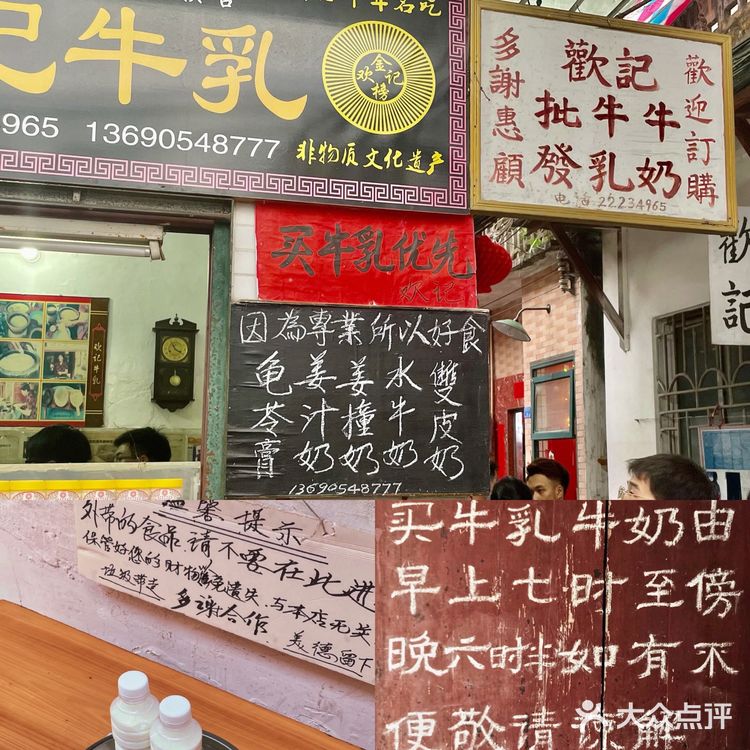 记牛乳
965 13690548777
金
欢记
榜
非物质文化遗产
多謝惠顧
歡記
批牛牛
發乳奶
歡迎訂購
电话22234965
买牛乳优先
欢记
歡記
欢记牛乳
因為專業所以好食
龟苓膏
姜汁奶
姜撞奶
水牛奶
雙皮奶
13690548777
提示
外带的食品请不要在此进
保管好您的财物
遗失 与本店无关
垃圾带走
多謝合作
美德留下
买牛乳牛奶由
早上七时至傍
晚六时半如有不
便敬请谅解
大众点评